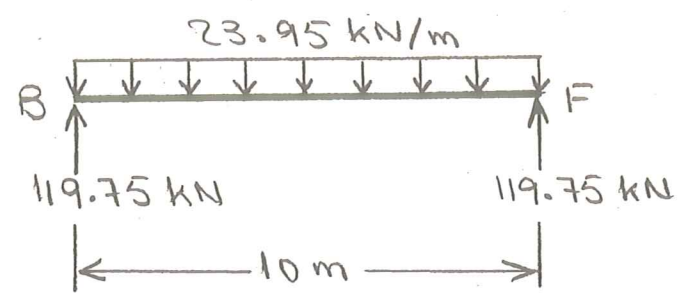 23.95 kN/m
B F
119.75 kN 119.75 kN
10 m